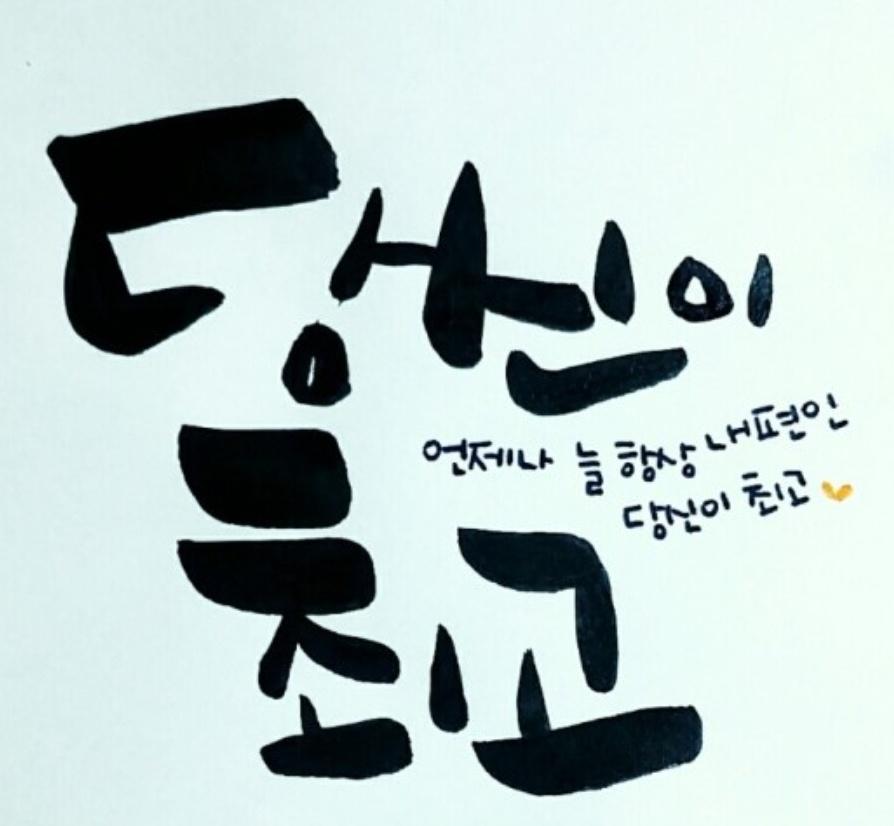 당신이
최고
언제나 늘 항상 내편인
당신이 최고